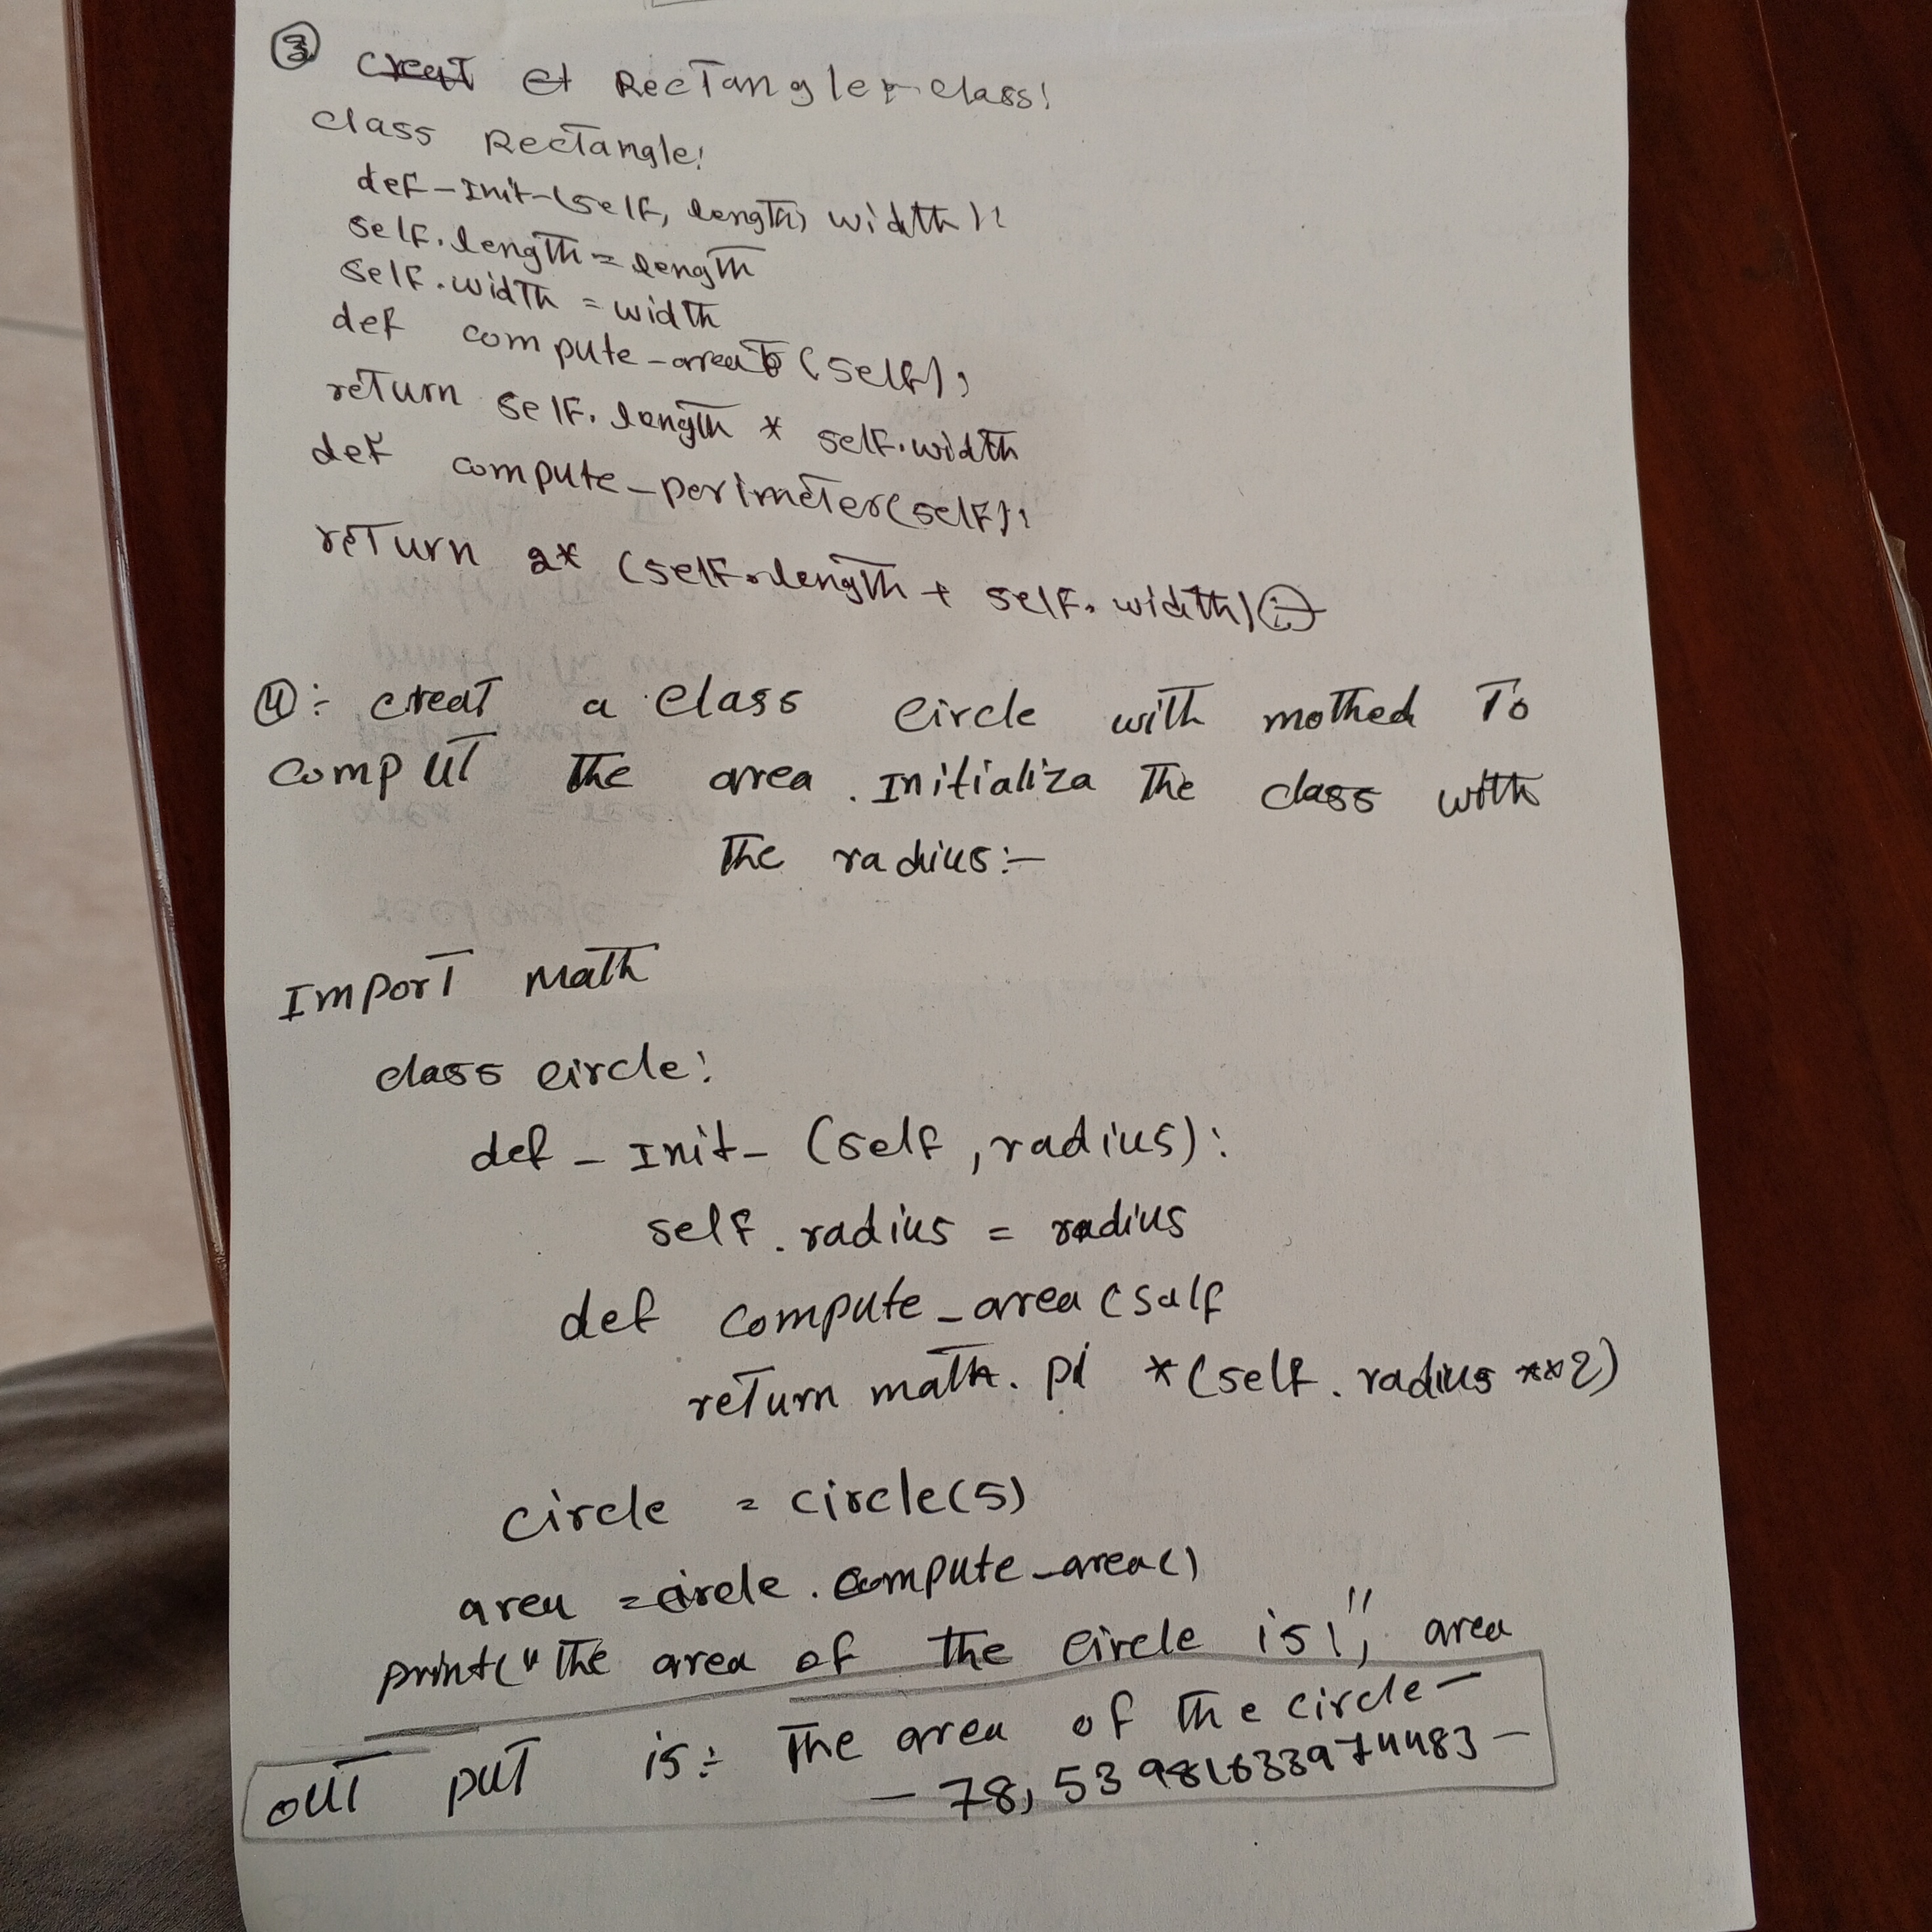 ③ Creat et RecTangler class:
class RecTangle:
def-Init-(self, length, width):
self.length = length
self.width = width
def compute-area(self);
return self.length * self.width
def compute-perimeter(self):
return 2* (self.length + self.width)
④:- creat a class circle with mothed To
computT The area. Initializa The class with
The radius:-
Import Math
class circle:
def - Init- (self, radius):
self.radius = radius
def compute_area (salf
return math.pi *(self.radius **2)
circle = circle(5)
area = circle.compute_area()
print("The area of the circle is!", area
out put is:- The area of The circle-
- 78,53981633974483-